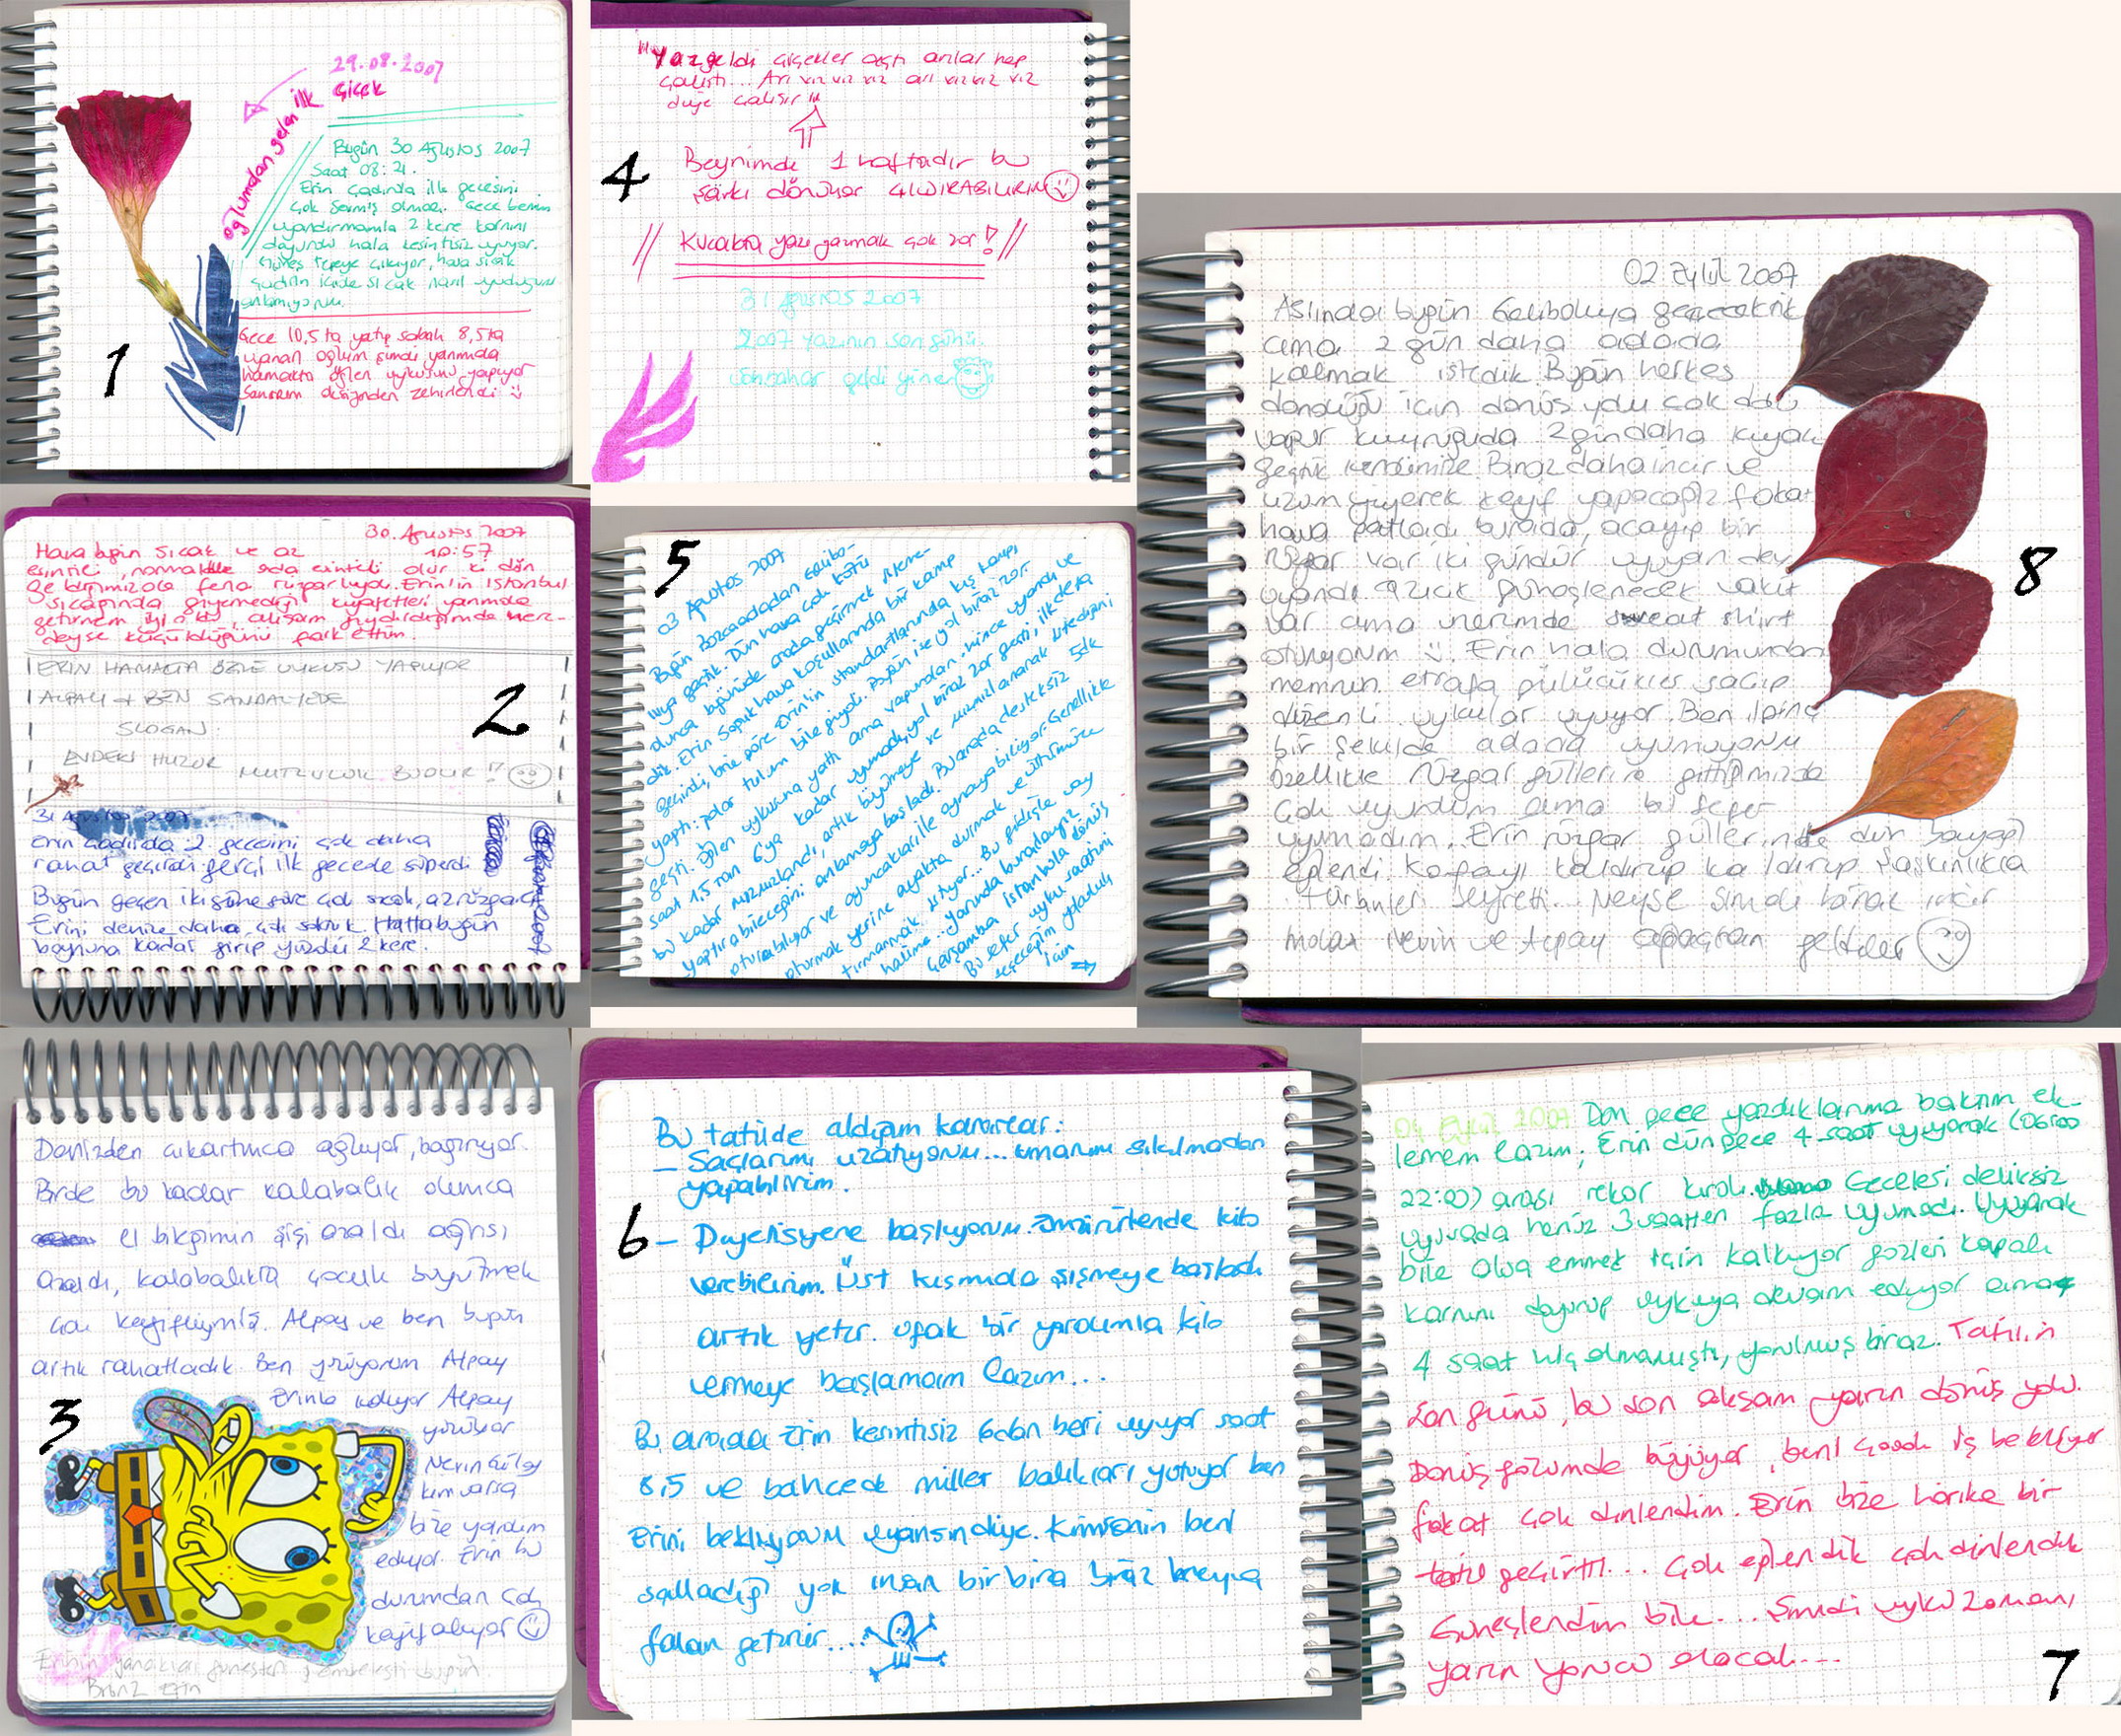 1
29.08.2007
oğlumdan gelen ilk çiçek
Bugün 30 Ağustos 2007
Saat 08:21.
Erin çadırda ilk gecesini
çok sevmiş olmalı. Gece benim
uyandırmamla 2 kere karnını
doyurdu hala kesintisiz uyuyor.
Güneş tepeye çıkıyor, hava sıcak
çadırın içide sıcak nasıl uyuduğunu
anlamıyorum.
Gece 10,5 ta yatıp sabah 8,5 ta
uyanan oğlum şimdi yanımda
hamakta öğlen uykusunu yapıyor
Sanırım oksijenden zehirlendi
2
30. Ağustos 2007
10:57
Hava bugün sıcak ve az
esintili, normalde ada esintili olur ki dün
geldiğimizde fena rüzgarlıydı. Erin'in İstanbul
sıcağında giyemediği kıyafetleri yanımda
getirmem iyi oldu, akşam giydirdiğimde ner-
deyse küçüldüğünü fark ettim.
ERİN HAMAKTA ÖĞLE UYKUSU YAPIYOR
ALPAY & BEN SANDALYEDE
SLOGAN:
EVDEKİ HUZUR MUTLULUK BUDUR!!
31 Ağustos 2007
Erin çadırda 2. gecesini çok daha
rahat geçirdi gerçi ilk gecede süperdi
Bugün geçen iki güne göre çok sıcak, az rüzgarlı
Erini denize daha çok soktuk. Hatta bugün
boynuna kadar girip yüzdü 2 kere.
3
Denizden çıkartınca ağlıyor, bağırıyor.
Birde bu kadar kalabalık olunca
el bileğimin şişi azaldı ağrısı
azaldı, kalabalıkta çocuk büyütmek
çok keyifliymiş. Alpay ve ben bugün
artık rahatladık. Ben yüzüyorum Alpay
Erinle kalıyor Alpay
yüzüyor
Nevin Gülay
kim varsa
bize yardım
ediyor. Erin bu
durumdan çok
keyif alıyor
Erinin yanakları güneşten pembeleşti bugün.
Bronz Erin
4
"Yaz geldi çiçekler açtı arılar hep
çalıştı... Arı vız vız vız arı vız vız vız
diye çalışır"
Beynimde 1 haftadır bu
şarkı dönüyor ÇILDIRABİLİRİM
Kucakta yazı yazmak çok zor!
31 Ağustos 2007
2007 yazının son günü.
Sonbahar geldi yine
5
03 Ağustos 2007
Bugün Bozcaadadan Gelibo-
luya geçtik. Dün hava çok kötü
olunca bugünüde arada geçirmek isteme-
dik. Erin soğuk hava koşullarında bir kamp
geçirdi, bize göre Erin'in standartlarında kış kampı
yaptı: polar tulum bile giydi. Bugün ise yol biraz zor
geçti. Öğlen uykusuna yattı ama vapurdan inince uyandı ve
saat 1,5 tan 6'ya kadar uyumadı, yol biraz zor geçti, ilk defa
bu kadar mızmızlandı, artık büyümeye ve mızmızlanarak istediğini
yaptırabileceğini anlamaya başladı. Bu arada desteksiz 5dk
oturabiliyor ve oyuncakları ile oynayabiliyor. Genellikle
oturmak yerine ayakta durmak ve üstümüze
tırmanmak istiyor... Bu gidişle vay
halime.. Yarında buradayız
Çarşamba İstanbula dönüş
Bu sefer uyku saatini
seçeceğim yolculuk
için
6
Bu tatilde aldığım kararlar:
– Saçlarımı uzatıyorum... umarım sıkılmadan
yapabilirim.
– Diyetisyene başlıyorum. Emzirirkende kilo
verebilirim. Üst kısmıda şişmeye başladı
artık yeter. ufak bir yardımla kilo
vermeye başlamam lazım...
Bu arada Erin kesintisiz 6dan beri uyuyor saat
8,5 ve bahçede millet balıkları yutuyor ben
Erini bekliyorum uyansın diye. Kimsenin beni
salladığı yok insan bir bira biraz meyva
falan getirir...
7
04 Eylül 2007 Dün gece yazdıklarıma bakım ek-
lemem lazım; Erin dün gece 4 saat uyuyarak (06:00
22:00) arası rekor kırdı. Geceleri deliksiz
uykuda henüz 3 saatten fazla uyumadı. Uyuyarak
bile olsa emmek için kalkıyor gözleri kapalı
karnını doyurup uykuya devam ediyor ama
4 saat hiç olmamıştı, yorulmuş biraz. Tatilin
son günü, bu son akşam yarın dönüş yolu.
Dönüş gözümde büyüyor, beni çook iş bekliyor
fakat çok dinlendim. Erin bize harika bir
tatil geçirtti... Çok eğlendik çok dinlendik
Güneşlendim bile... Şimdi uyku zamanı,
yarın yorucu olacak...
8
02 Eylül 2007
Aslında bugün Geliboluya geçecektik
ama 2 gün daha adada
kalmak istedik. Bugün herkes
döndüğü için dönüş yolu çok dolu
vapur kuyruğuda. 2 gün daha kıyak
geçtik kendimize. Biraz daha incir ve
üzüm yiyerek keyif yapacağız fakat
hava patladı burada, acayip bir
rüzgar var iki gündür uyuyan dev
uyandı. Azıcık güneşlenecek vakit
var ama üzerimde sweat shirt
oturuyorum. Erin hala durumundan
memnun etrafa gülücükler saçıp
düzenli uykular uyuyor. Ben ilginç
bir şekilde adada uyumuyorum
özellikle rüzgar güllerine gittiğimizde
çok uyurdum ama bu sefer
uyumadım. Erin rüzgar güllerinde dün bayağı
eğlendi. Kafayı kaldırıp kaldırıp şaşkınlıkla
türbinleri seyretti. Neyse şimdi bana incir
molası Nevin ve Alpay ağaçtan geldiler